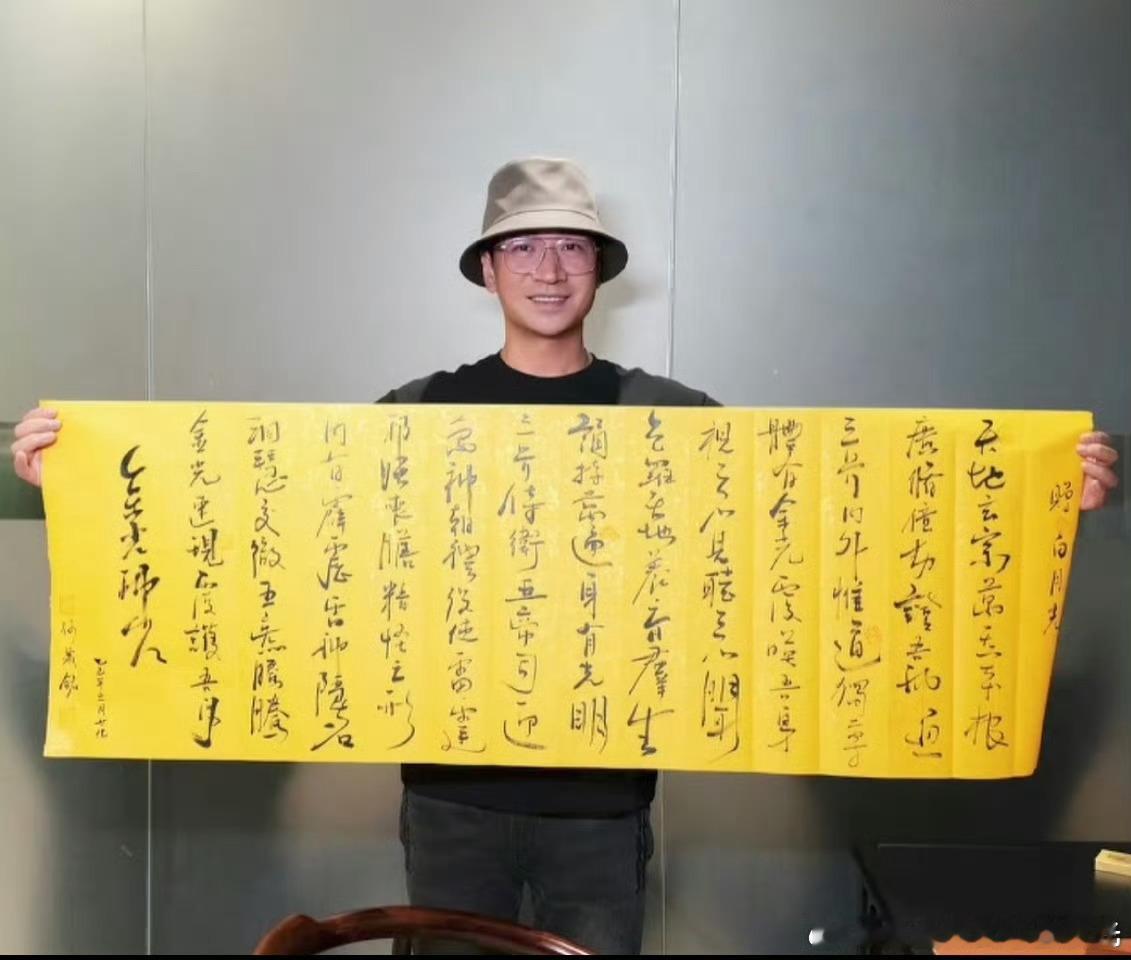 贈 白月光
天地玄宗萬炁本根
廣脩億劫證吾神通
三界內外惟道獨尊
體有金光覆映吾身
視之不見聽之不聞
包羅天地養育羣生
誦持萬遍身有光明
三界侍衛五帝司迎
萬神朝禮役使雷霆
喪膽精怪亡形
內有霹靂雷神隱名
洞慧交徹五炁騰騰
金光速現覆護吾身
金光神咒
何晟銘